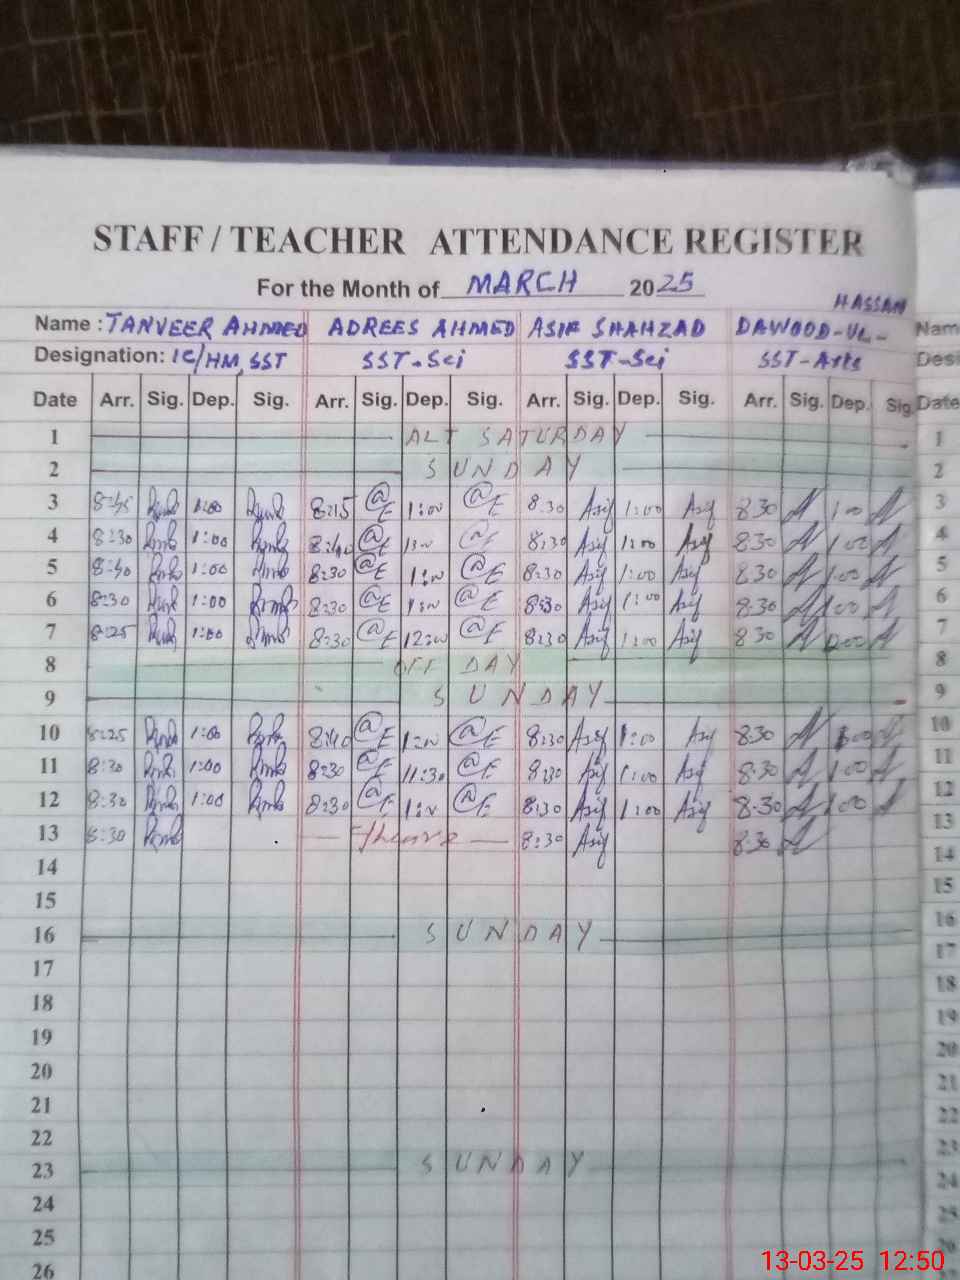 STAFF / TEACHER ATTENDANCE REGISTER
For the Month of MARCH 2025
HASSAN
Name : TANVEER AHMED ADREES AHMED ASIF SHAHZAD DAWOOD-UL- Nam
Designation: IC/HM, SST SST-Sci SST-Sci SST-Arts Desi
Date Arr. Sig. Dep. Sig. Arr. Sig. Dep. Sig. Arr. Sig. Dep. Sig. Arr. Sig. Dep. Sig Date
1 ALT SATURDAY 1
2 SUNDAY 2
3 8:45 1:00 8:15 1:00 8.30 Asif 1:00 Asif 8 30 1 00 3
4 8:30 1:00 8:40 1:00 8:30 Asif 1:00 Asif 8.30 1 00 4
5 8:40 1:00 8:30 1:00 8:30 Asif 1:00 Asif 8.30 1.00 5
6 8:30 1:00 8:30 1:00 8:30 Asif 1:00 Asif 8.30 1.00 6
7 8:25 1:00 8:30 12:00 8:30 Asif 1:00 Asif 8 30 7
8 OFF DAY 8
9 SUNDAY 9
10 8:25 1:00 8:40 1:00 8:30 Asif 1:00 Asif 8.30 10
11 8:30 1:00 8:30 11:30 8:30 Asif 1:00 Asif 8.30 1.00 11
12 8:30 1:00 8:30 1:00 8:30 Asif 1:00 Asif 8-30 1.00 12
13 8:30 8:30 Asif 8.30 13
14 14
15 15
16 SUNDAY 16
17 17
18 18
19 19
20 20
21 21
22 22
23 SUNDAY 23
24 24
25 25
26
13-03-25 12:50